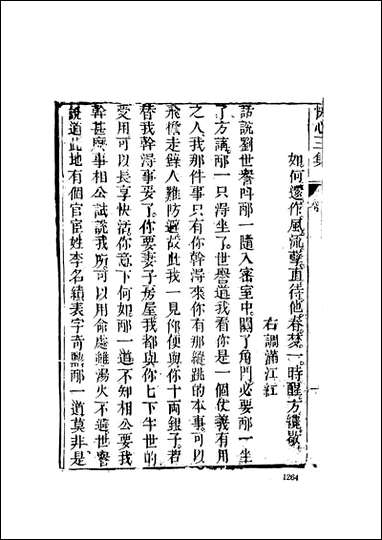 快心三集
如何還作風流孽直待他春夢一時醒方纔歇
右調滿江紅
話說劉世譽呌邴一隨入密室中關了角門必要邴一坐
了方議邴一只得坐了世譽道我看你是一個仗義有用
之人我那件事只有你幹得來你有那縱跳的本事可以
飛檐走鋒人難防避故此我一見你便與你十兩銀子若
替我幹得事妥了你要妻子房屋我都與你七下半世的
受用可以長享快活你意下何如邴一道不知相公要我
幹甚麽事相公試說我所可以用命處雖湯火不避世譽
說道此地有個官宦姓李名績表字竒勲邴一道莫非是
1264